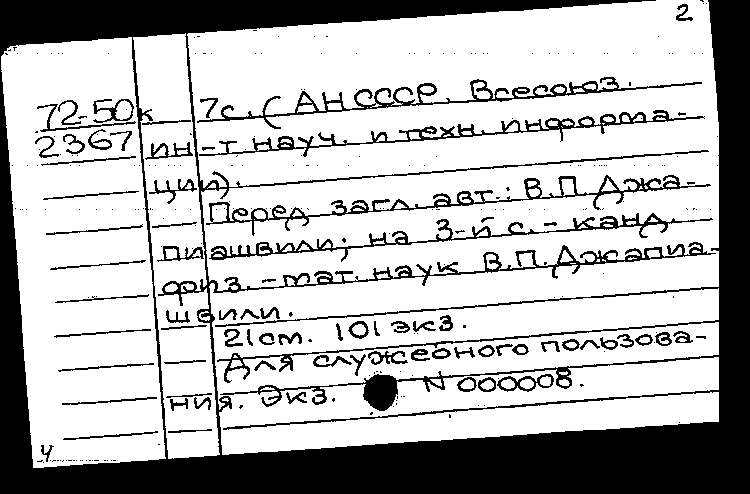 2
72-50к 7с. (АН СССР. Всесоюз.
2367 ин-т науч. и техн. информа-
ции).
Перед загл. авт.: В.П. Джа-
пиашвили; на 3-й с. - канд.
физ. -мат. наук В.П. Джапиа-
швили.
21 см. 101 экз.
Для служебного пользова-
ния. Экз. N 000008.
ч